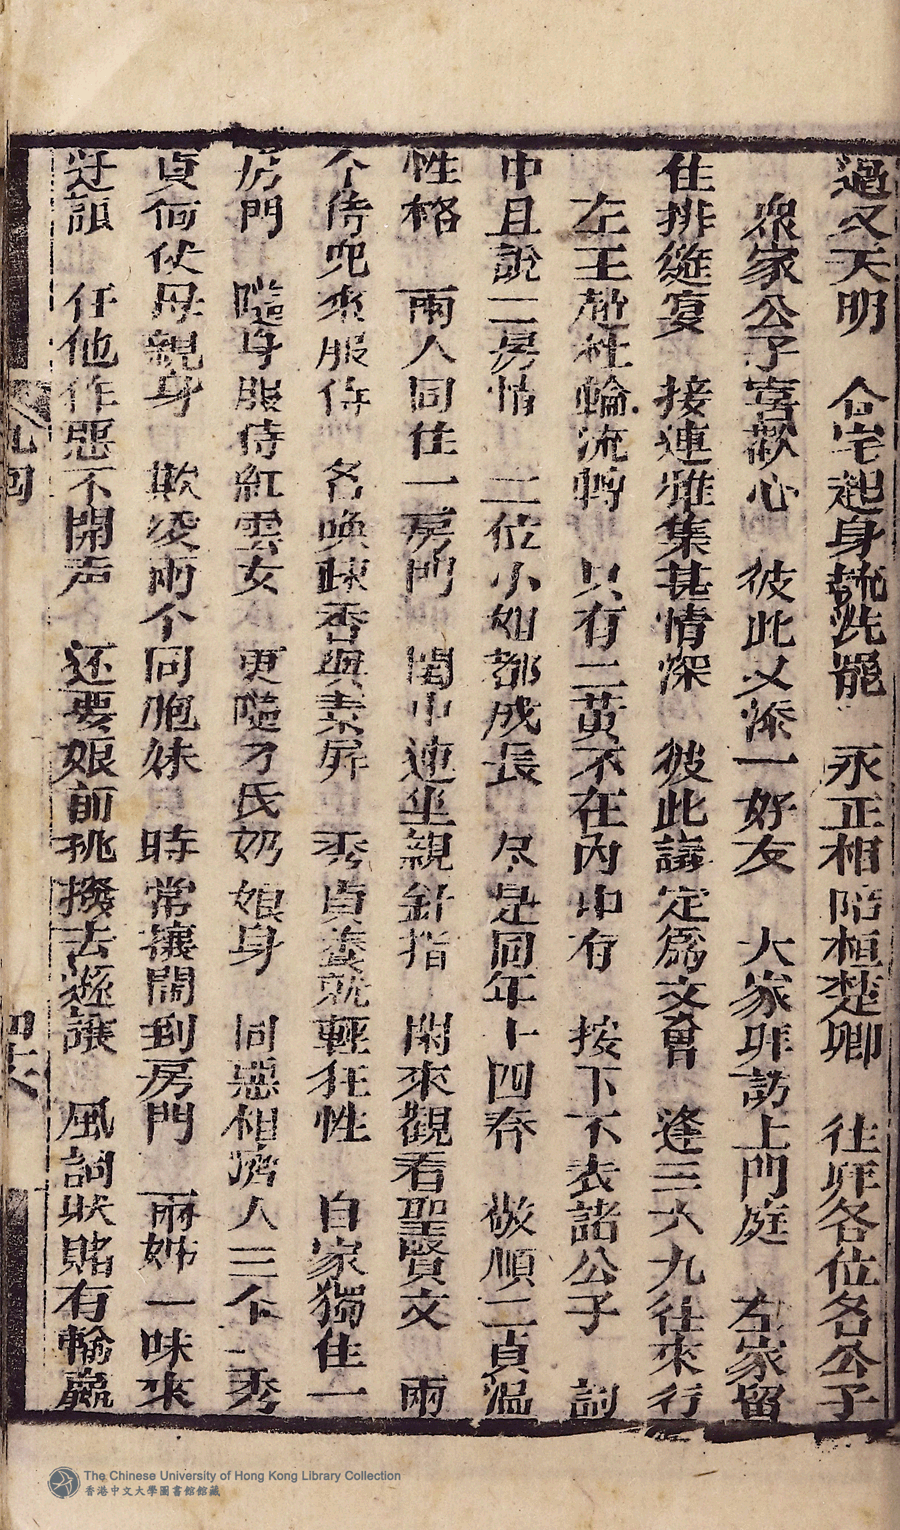 過又天明　合宅起身梳洗罷　永正相陪桓楚卿　往拜各位各公子
衆家公子喜歡心　彼此又添一好友　大家拜訪上門庭　左家留
住排筵宴　接連雅集甚情深　彼此議定爲文會　逢三六九往來行
左王趙杜輪流轉　只有二黃不在內中存　按下不表諸公子　詞
中且說二房情　二位小姐都成長　尽是同年十四春　敬順二貞溫
性格　兩人同住一房門　閨中連坐親針指　閑來觀看聖賢文　兩
个侍兒來服侍　名喚踈香與素屏　秀貞養就輕狂性　自家獨住一
房門　隨身服侍紅雲女　更隨刁氏奶娘身　同惡相濟人三个　秀
貞倚仗母親身　欺凌兩个同胞妹　時常攘鬧到房門　兩姊一味來
迂誏　任他作惡不開声　还要娘前挑撥去　遜讓　風詞狀賭有輸贏
九回
四十六
The Chinese University of Hong Kong Library Collection
香港中文大學圖書館館藏